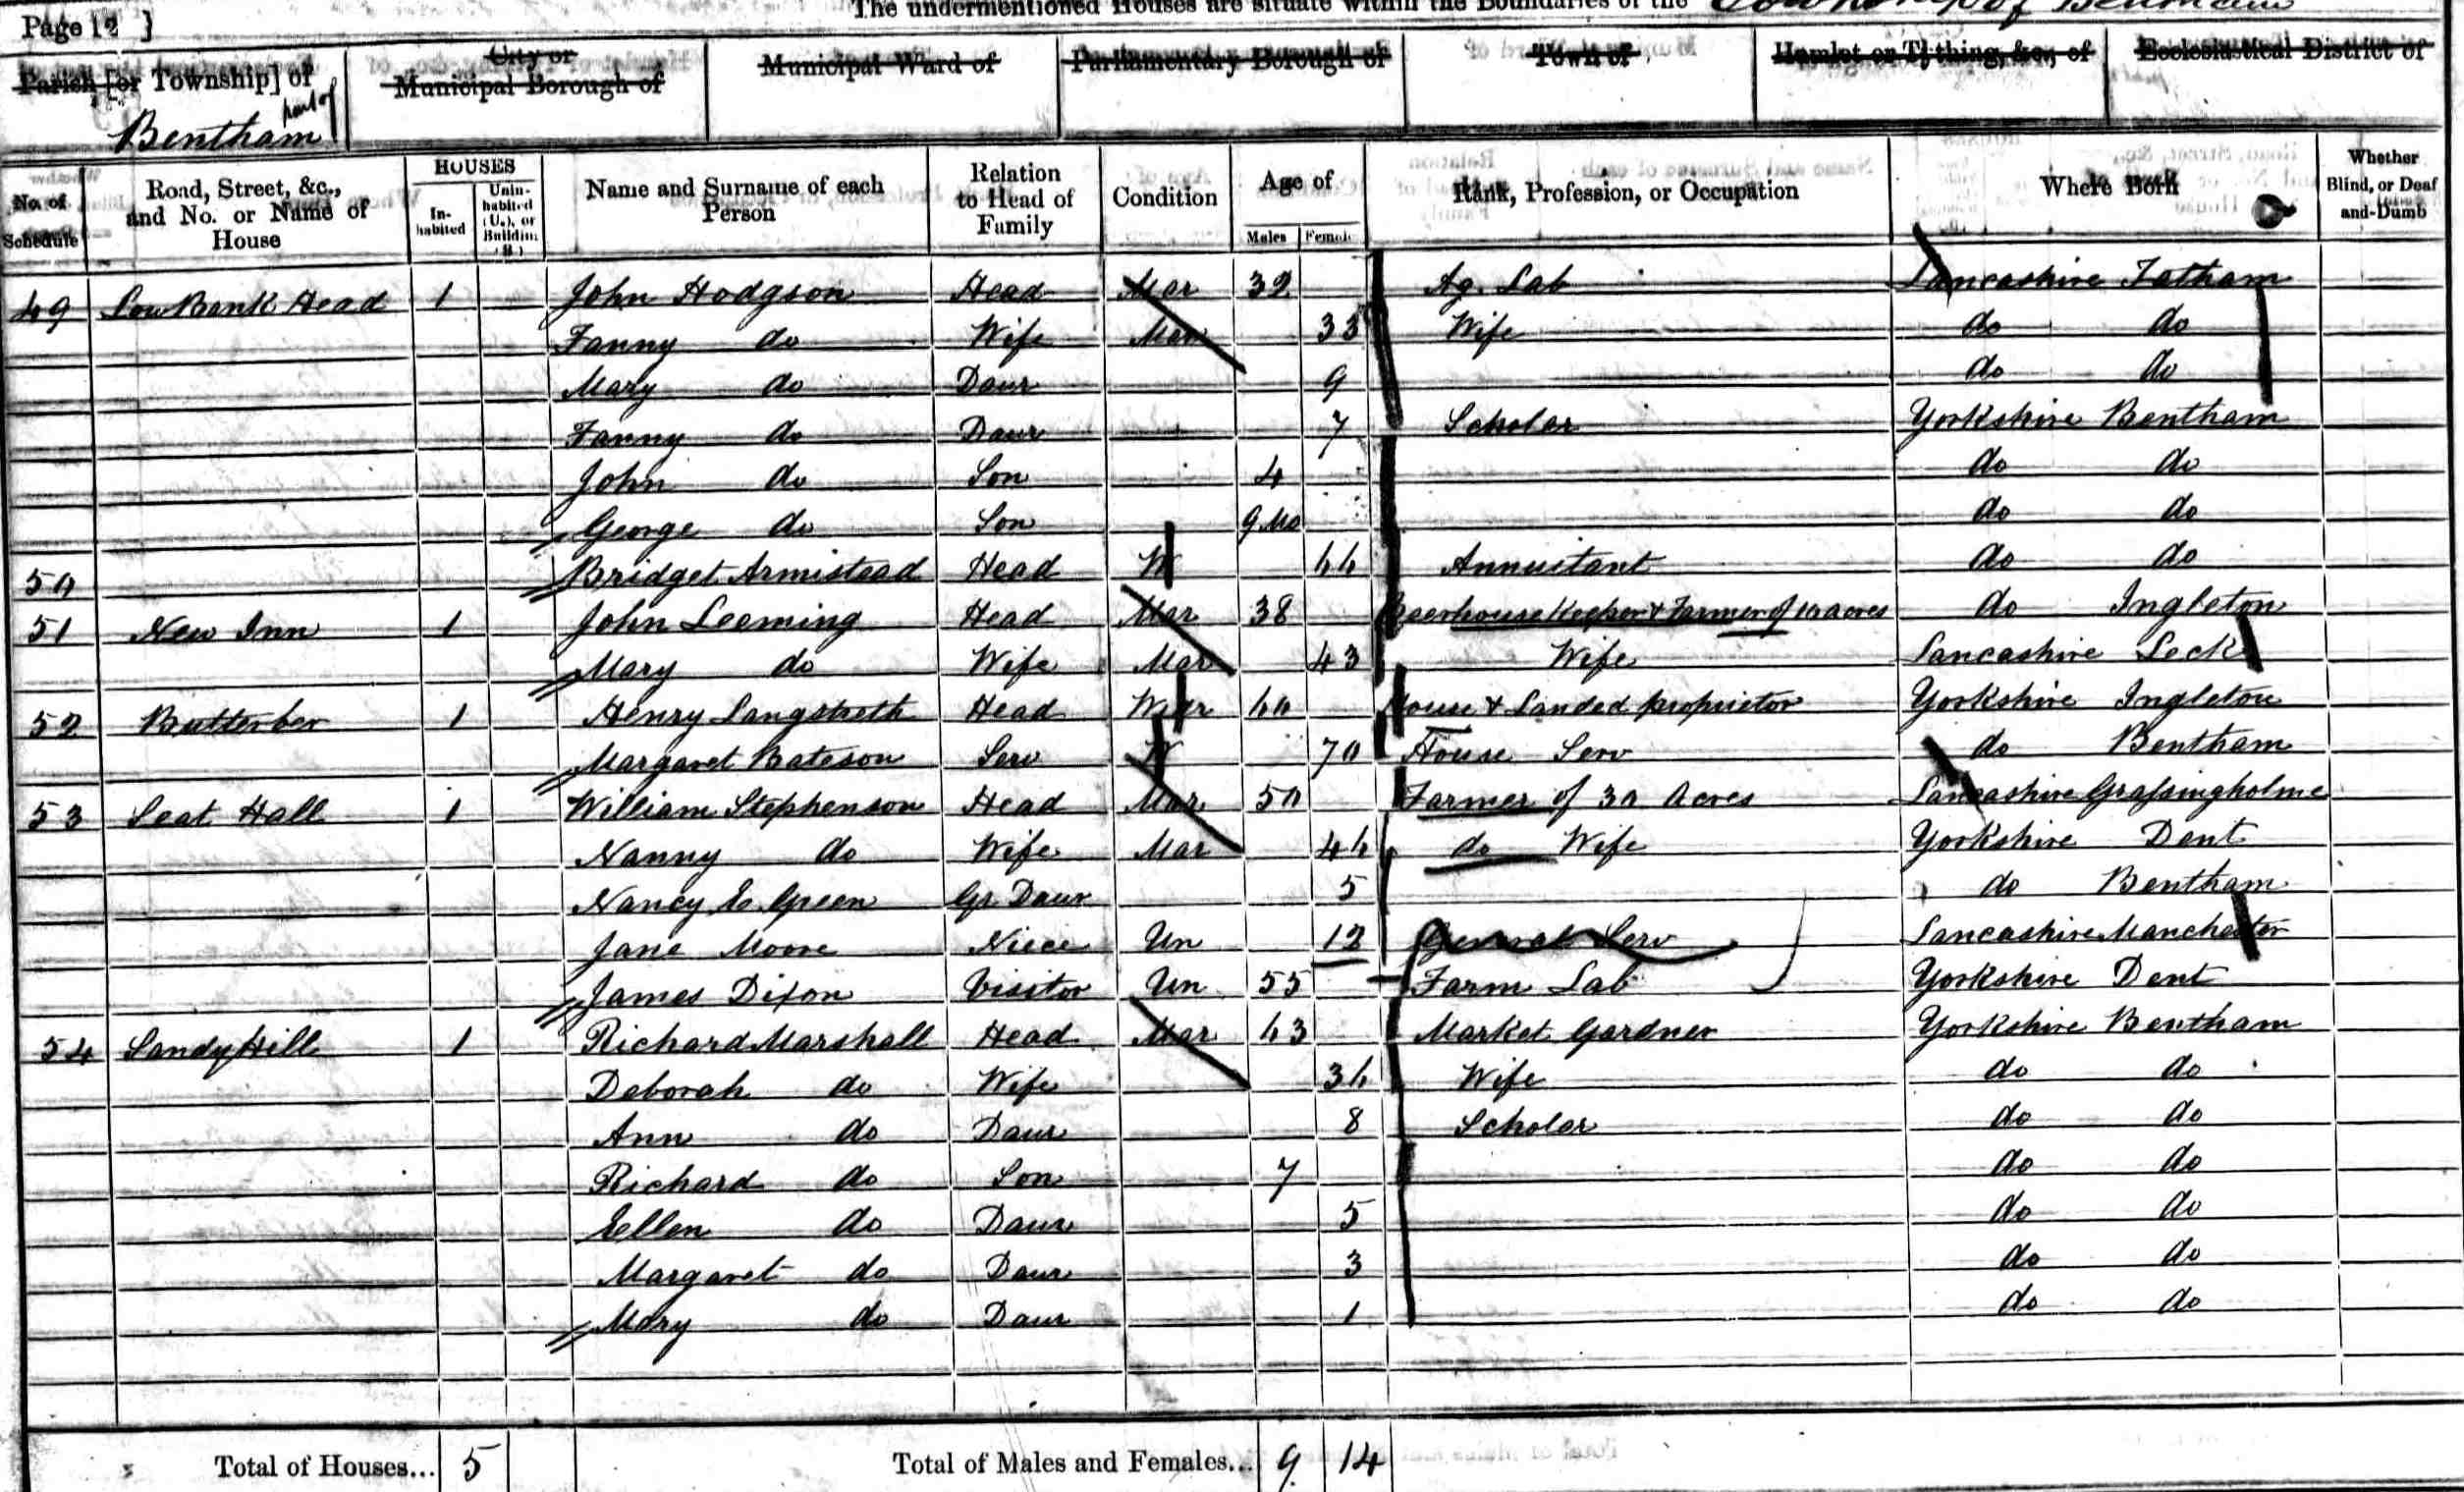 The undermentioned Houses are situate within the Boundaries of the Township of Bentham
Page 12 ]
Parish [or Township] of part of Bentham
City or Municipal Borough of
Municipal Ward of
Parliamentary Borough of
Town of
Hamlet or Tything, &c., of
Ecclesiastical District of
No. of Schedule
Road, Street, &c., and No. or Name of House
HOUSES
Inhabited
Uninhabited (U.), or Building (B.)
Name and Surname of each Person
Relation to Head of Family
Condition
Age of
Males
Females
Rank, Profession, or Occupation
Where Born
Whether Blind, or Deaf-and-Dumb
49 Low Bank Head 1 John Hodgson Head Mar 32 Ag. Lab Lancashire Tatham
Fanny do Wife Mar 33 Wife do do
Mary do Daur 9 do do
Fanny do Daur 7 Scholar Yorkshire Bentham
John do Son 4 do do
George do Son 9 Mo do do
50 Bridget Armistead Head W 66 Annuitant do do
51 New Inn 1 John Leeming Head Mar 38 Beerhouse Keeper & Farmer of 10 acres do Ingleton
Mary do Wife Mar 43 Wife Lancashire Leck
52 Butterber 1 Henry Langstreth Head Wdr 60 House & Landed proprietor Yorkshire Ingleton
Margaret Bateson Serv W 70 House Serv do Bentham
53 Leat Hall 1 William Stephenson Head Mar 50 Farmer of 30 Acres Lancashire Grassingholme
Nanny do Wife Mar 46 do Wife Yorkshire Dent
Nancy E Green Gr Daur 5 do Bentham
Jane Moore Niece Un 12 General Serv Lancashire Manchester
James Dixon Visitor Un 55 Farm Lab Yorkshire Dent
54 Sandy Hill 1 Richard Marshall Head Mar 63 Market Gardner Yorkshire Bentham
Deborah do Wife 36 Wife do do
Ann do Daur 8 Scholar do do
Richard do Son 7 do do
Ellen do Daur 5 do do
Margaret do Daur 3 do do
Mary do Daur 1 do do
Total of Houses... 5 Total of Males and Females... 9 14